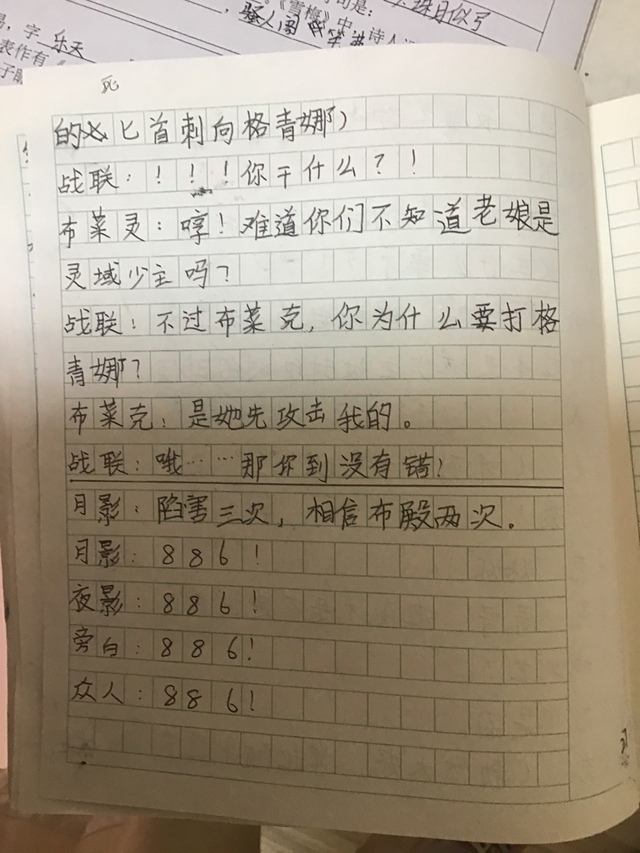 是:
《雪梅》中,诗人
骚人阁
易,字 乐天
表作有《
死
的匕首刺向格青娜)
战联:!!!你干什么?!
布莱灵:哼!难道你们不知道老娘是
灵域少主吗?
战联:不过布莱克,你为什么要打格
青娜?
布莱克:是她先攻击我的。
战联:哦……那你到没有错!
月影:陷害三次,相信布殿两次.
月影:886!
夜影:886!
旁白:886!
众人:886!